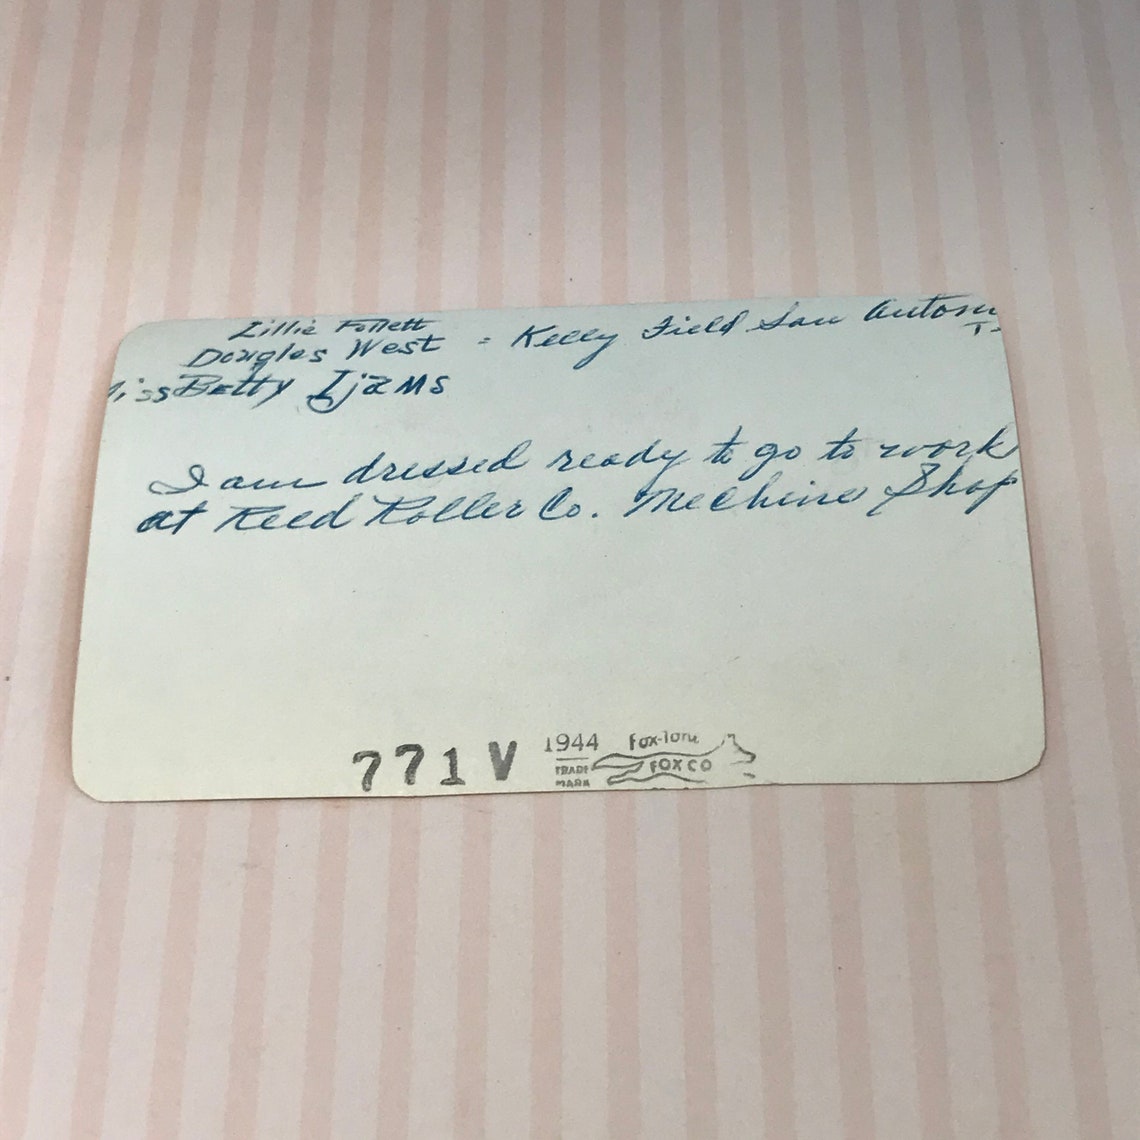 Lillie Follett
Douglas West - Kelly Field San Antoni
T
iss Betty Ijams
I am dressed ready to go to work
at Reed Roller Co. Mechine Shop
771 V
1944
TRADE
MARK
Fox-Tone
FOX CO